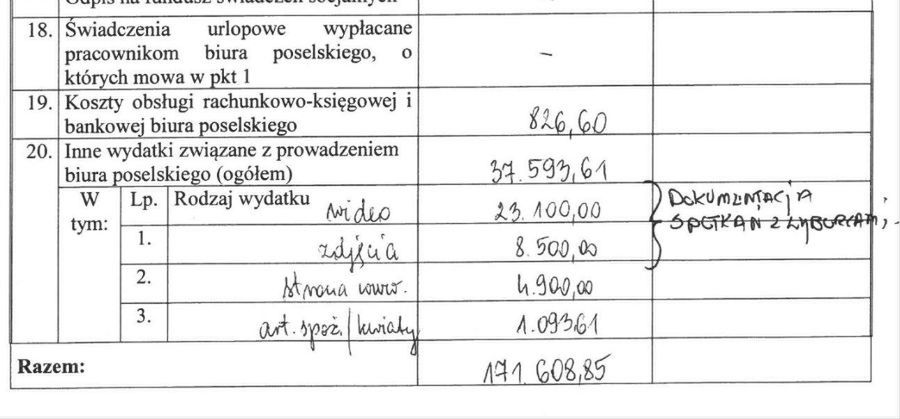 18. Świadczenia urlopowe wypłacane
pracownikom biura poselskiego, o
których mowa w pkt 1 –
19. Koszty obsługi rachunkowo-księgowej i
bankowej biura poselskiego 826,60
20. Inne wydatki związane z prowadzeniem
biura poselskiego (ogółem) 37.593,61
W tym: Lp. Rodzaj wydatku wideo 23.100,00 DOKUMENTACJA
1. zdjęcia 8.500,00 SPOTKAŃ Z WYBORCAMI
2. strona www. 4.900,00
3. art. spoż./kwiaty 1.093,61
Razem: 171.608,85